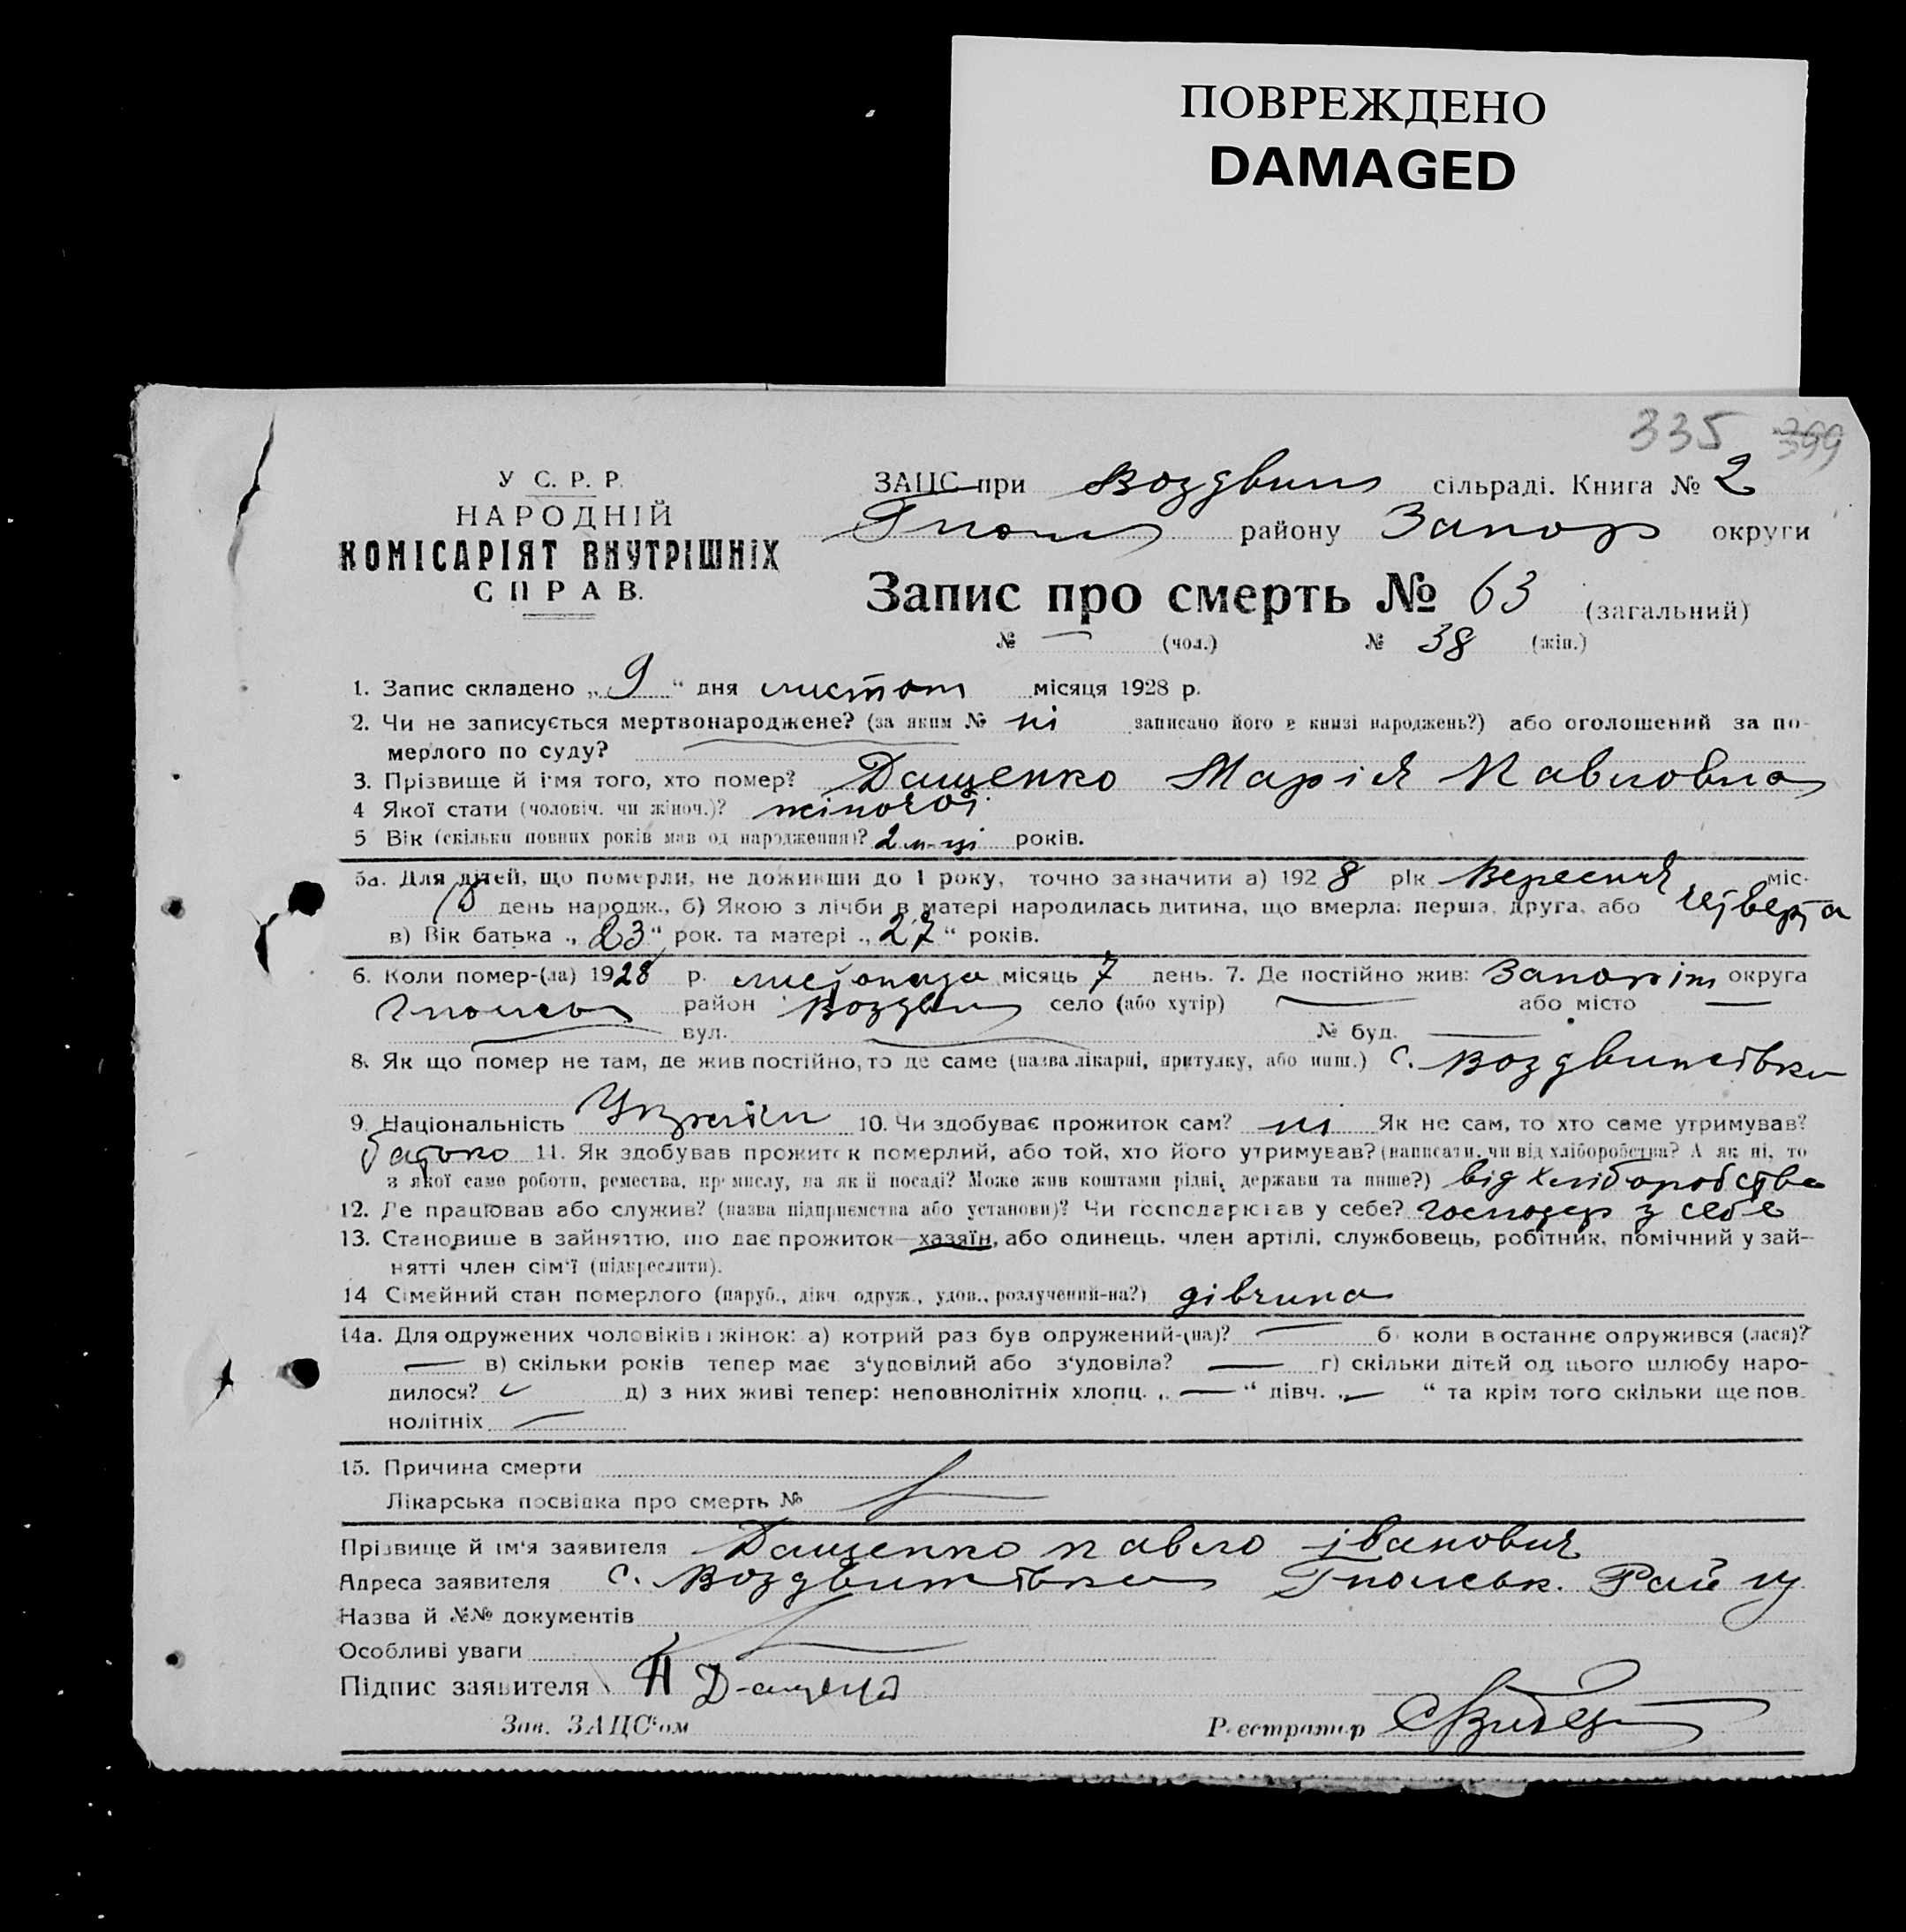 ПОВРЕЖДЕНО
DAMAGED
335 399
У С. Р. Р.
НАРОДНІЙ
КОМІСАРІЯТ ВНУТРІШНІХ
СПРАВ.
ЗАЦС при Воздвиж сільраді. Книга № 2
району Запор округи
Запис про смерть № 63 (загальний)
№ — (чол.) № 38 (жін.)
1. Запис складено „ 9 “ дня листоп місяця 1928 р.
2. Чи не записується мертвонароджене? (за яким № ні записано його в книзі народжень?) або оголошений за по-
мерлого по суду?
3. Прізвище й ім'я того, хто помер? Дащенко Марія Павловна
4 Якої стати (чоловіч. чи жіноч.)? жіночої
5 Вік (скільки повних років мав од народження)? 2 м-ці років.
5а. Для дітей, що померли, не доживши до 1 року, точно зазначити а) 192 8 рік Вересня міс.
день народж., б) Якою з лічби в матері народилась дитина, що вмерла: перша, друга, або четверта
в) Вік батька „ 23 “ рок. та матері „ 27 “ років.
6. Коли помер-(ла) 1928 р. листопада місяць 7 день. 7. Де постійно жив: Запоріж округа
район Воздвиж село (або хутір) — або місто —
вул. № буд. —
8. Як що помер не там, де жив постійно, то де саме (назва лікарні, притулку, або инш.) с. Воздвижівка
9. Національність Україн 10. Чи здобуває прожиток сам? ні Як не сам, то хто саме утримував?
батько 11. Як здобував прожиток померлий, або той, хто його утримував? (написати, чи від хліборобства? А як ні, то
з якої саме роботи, ремества, промислу, на якій посаді? Може жив коштами рідні, держави та инше?) від хліборобства
12. Де працював або служив? (назва підприємства або установи)? Чи господарював у себе? господар у себе
13. Становище в зайняттю, що дає прожиток—хазяїн, або одинець, член артілі, службовець, робітник, помічний у зай-
нятті член сім'ї (підкреслити).
14 Сімейний стан померлого (паруб., дівч. одруж., удов., розлучений-на?) дівчина
14а. Для одружених чоловіків і жінок: а) котрий раз був одружений-(на)? — б) коли в останнє одружився (лася)?
— в) скільки років тепер має з'удовілий або з'удовіла? — г) скільки дітей од цього шлюбу наро-
дилося? д) з них живі тепер: неповнолітніх хлопц. „ — “ дівч. „ — “ та крім того скільки ще пов-
нолітніх —
15. Причина смерти
Лікарська посвідка про смерть №
Прізвище й ім'я заявителя Дащенко Павло Іванович
Адреса заявителя с. Воздвижівка Гполськ. Рай ну
Назва й №№ документів
Особливі уваги
Підпис заявителя П Дащенко
Зав. ЗАЦС'ом Реєстратор